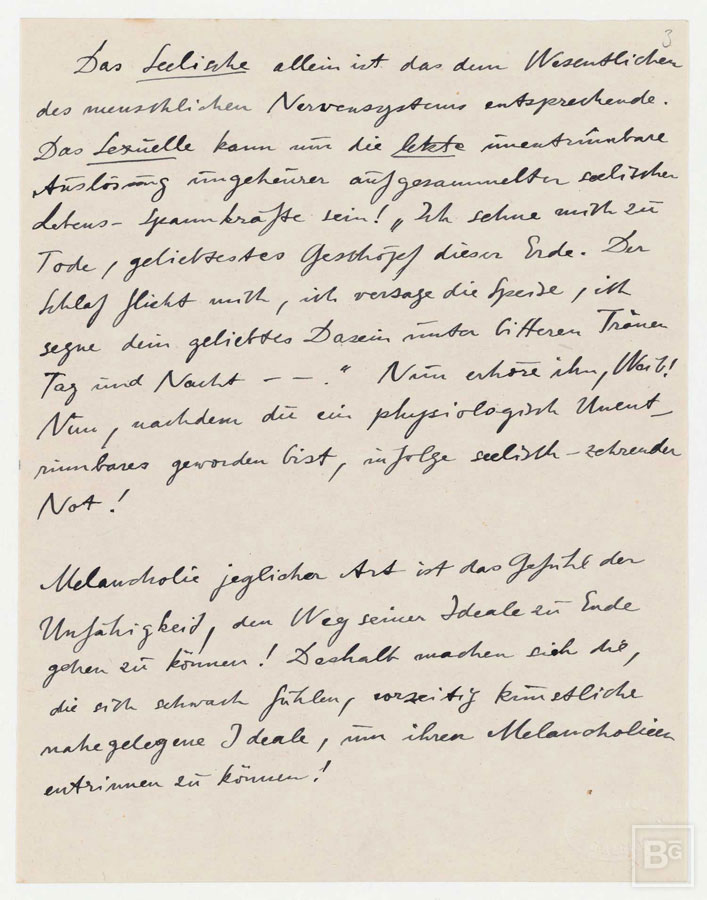 3
Das Seelische allein ist das dem Wesentlichen
des menschlichen Nervensystems entsprechende.
Das Sexuelle kann nur die letzte unentrinnbare
Auslösung ungeheurer aufgesammelter seelischer
Lebens-Spannkräfte sein! „Ich sehne mich zu
Tode, geliebtestes Geschöpf dieser Erde. Der
Schlaf flieht mich, ich versage die Speise, ich
segne dein geliebtes Dasein unter bitteren Tränen
Tag und Nacht — —.“ Nun erhöre ihn, Weib!
Nun, nachdem du ein physiologisch Unent-
rinnbares geworden bist, infolge seelisch-zehrender
Not!
Melancholie jeglicher Art ist das Gefühl der
Unfähigkeit, den Weg seiner Ideale zu Ende
gehen zu können! Deshalb machen sich die,
die sich schwach fühlen, vorzeitig künstliche
nahegelegene Ideale, um ihren Melancholieen
entrinnen zu können!
BG